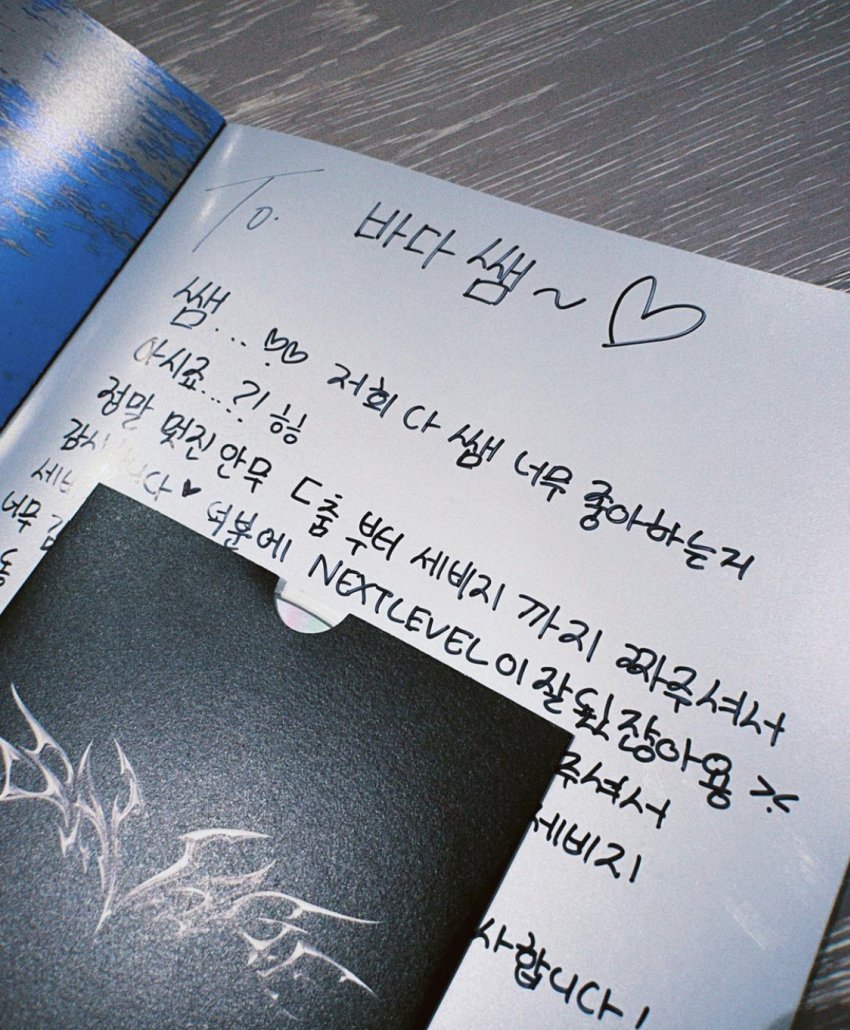 To. 바다 쌤~ ♡
쌤... ♡♡ 저희 다 쌤 너무 좋아하는지
아시죠...?! 힝
정말 멋진 안무 ㄷ춤 부터 세비지 까지 짜주셔서
감사합니다 ♥ 덕분에 NEXTLEVEL이 잘 됐잖아용 ><
주셔서
너무
세비지
사합니다!